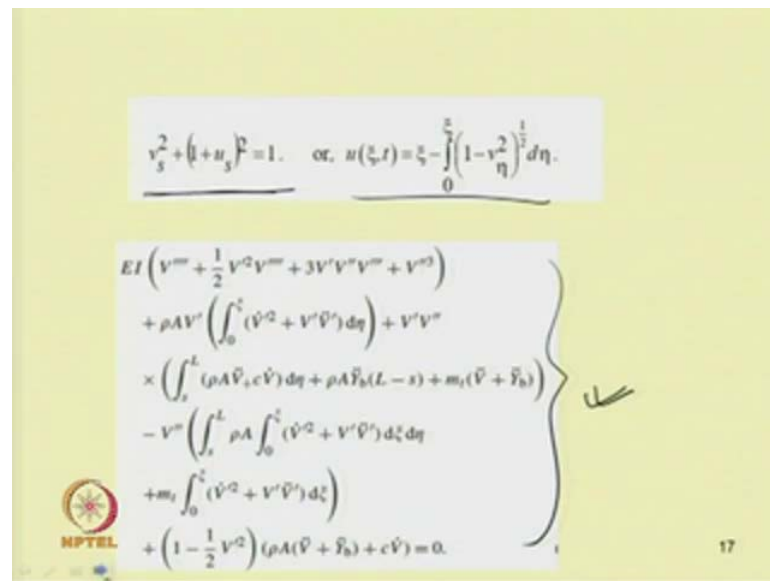 v_s^2 + (1 + u_s)^2 = 1. or, u(ξ,t) = ξ - ∫_0^ξ (1 - v_η^2)^{1/2} dη.
EI ( V'''' + 1/2 V'^2 V'''' + 3V'V''V''' + V''^3 )
+ ρAV' ( ∫_0^ξ (V̇'^2 + V'V̈') dη ) + V'V''
× ( ∫_s^L (ρAV̈ + cV̇) dη + ρAŸ_b(L - s) + m_t(V̈ + Ÿ_b) )
- V'' ( ∫_s^L ρA ∫_0^ξ (V̇'^2 + V'V̈') dξ dη
+ m_t ∫_0^ξ (V̇'^2 + V'V̈') dξ )
+ ( 1 - 1/2 V'^2 ) (ρA(V̈ + Ÿ_b) + cV̇) = 0.
NPTEL
17